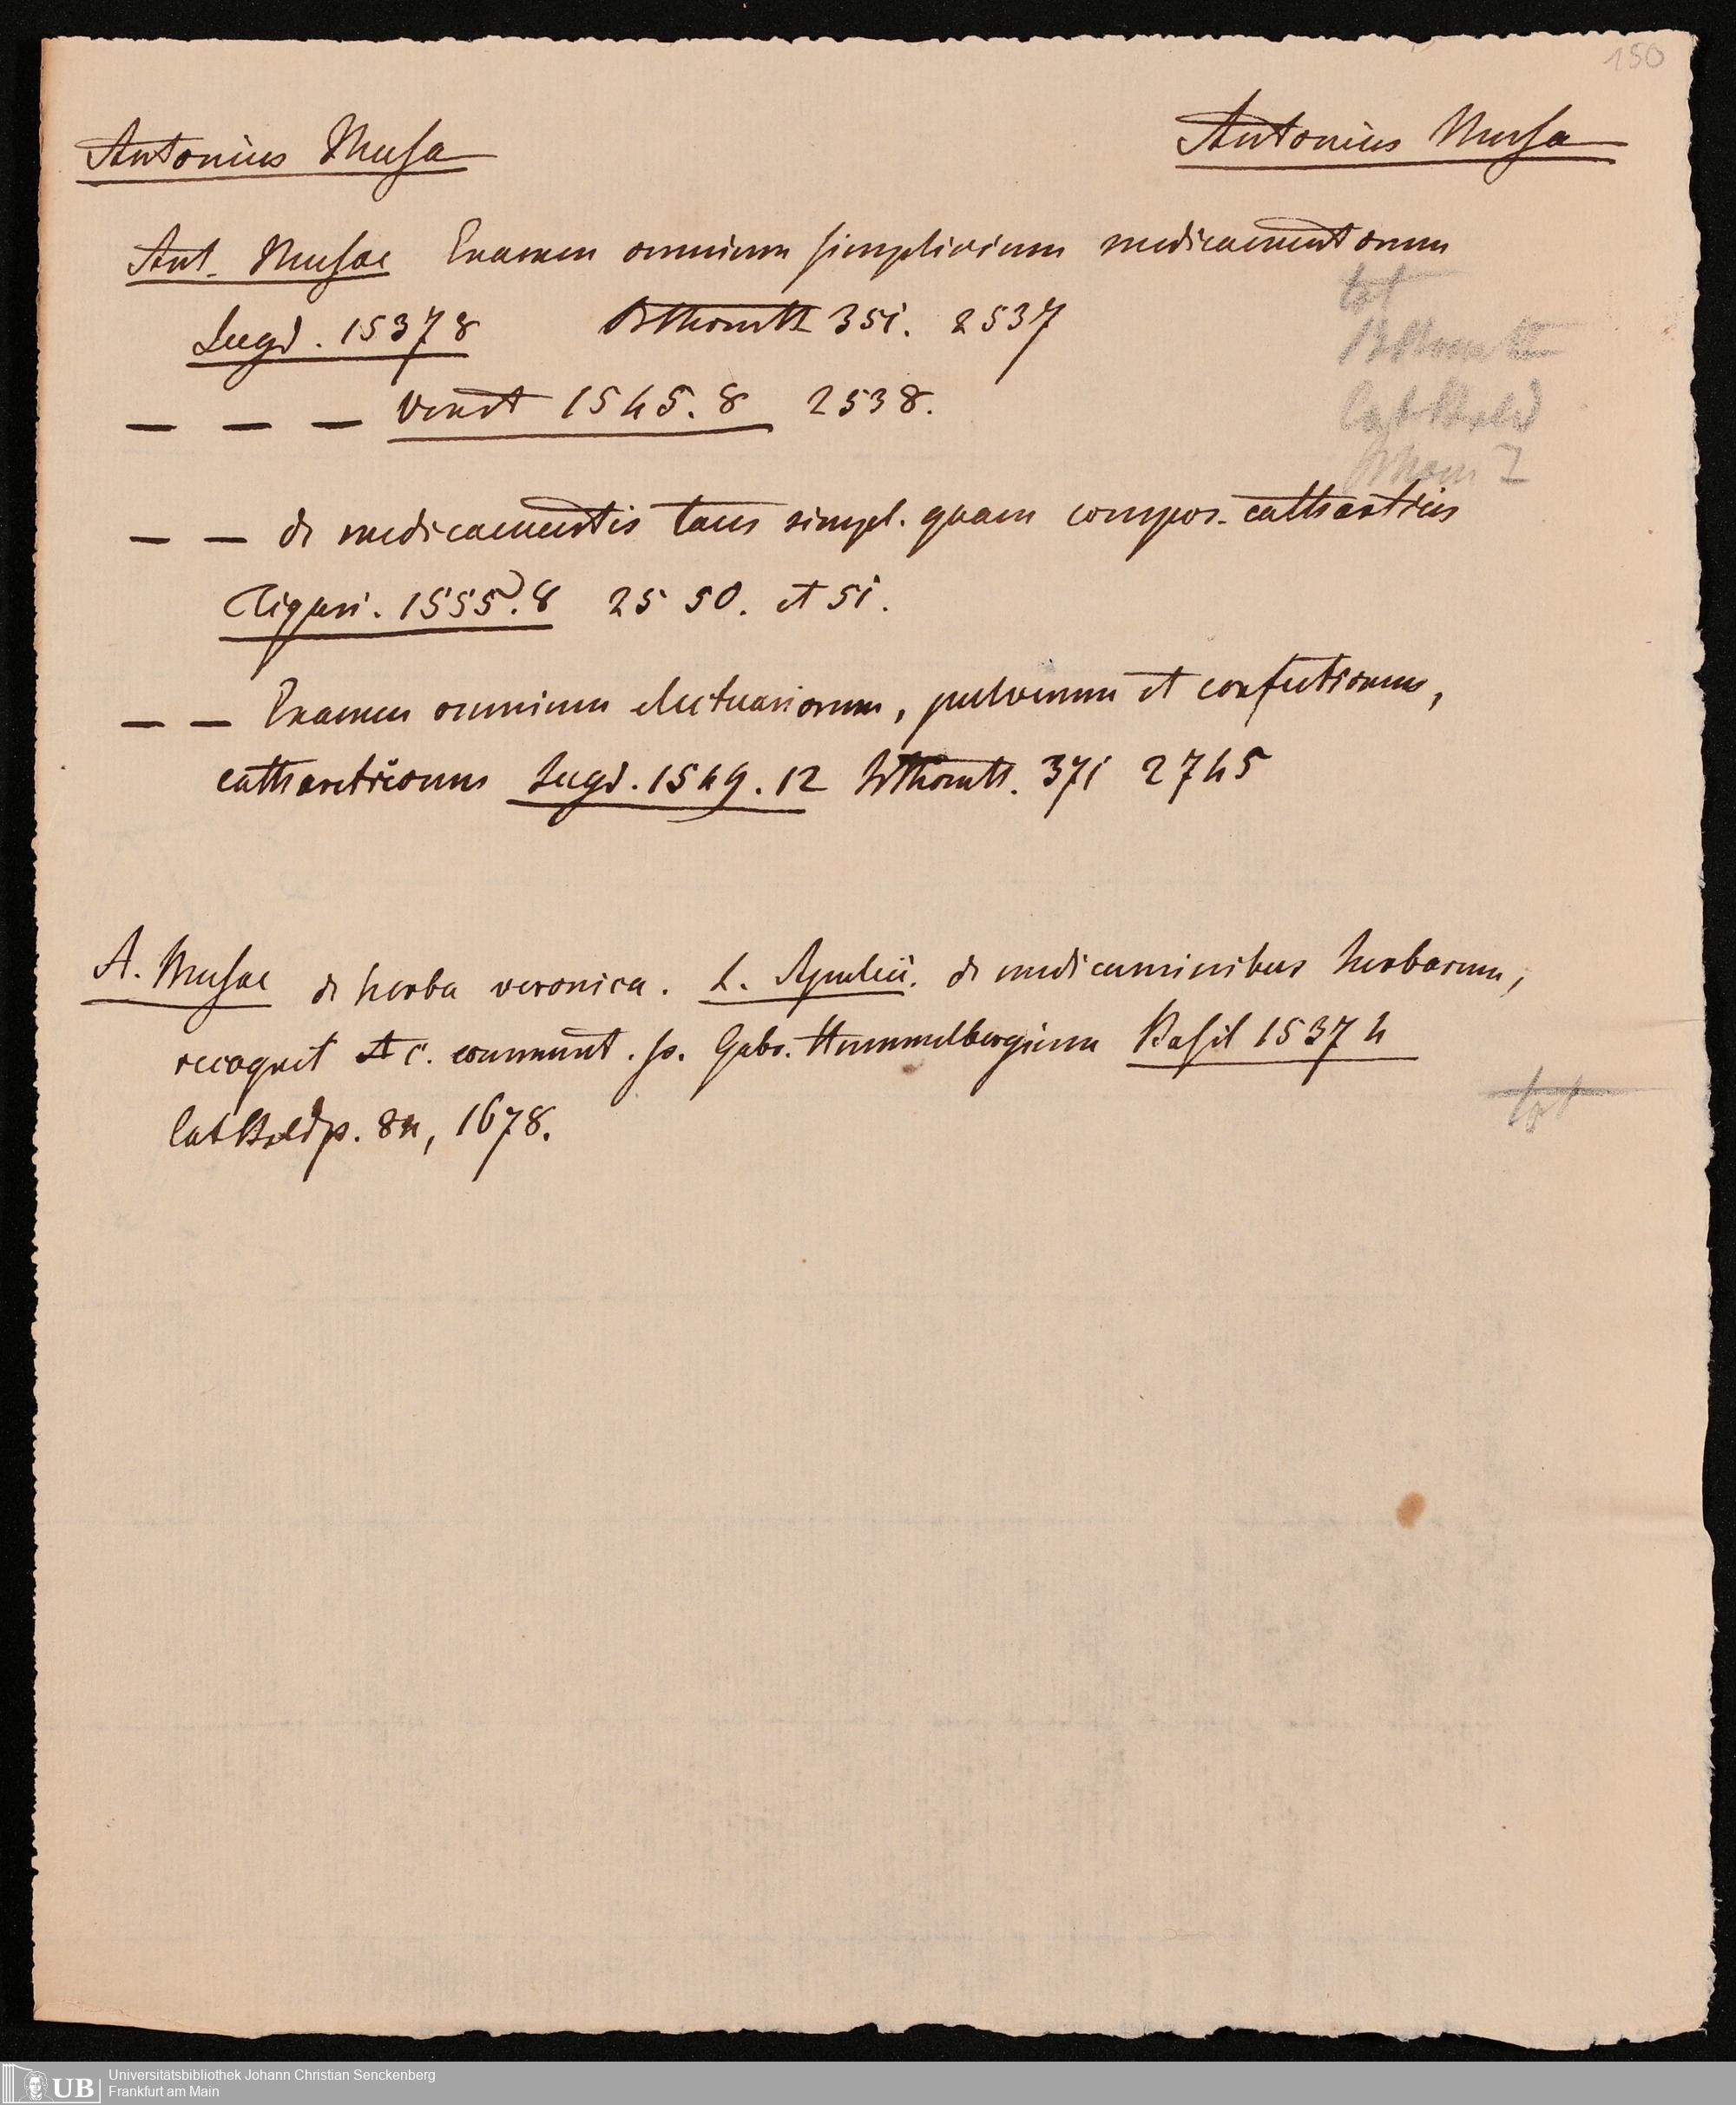 150
Antonius Musa
Antonius Musa
Ant. Musae Examen omnium simplicium medicamentorum
tot
Lugd. 1537 8 351. 2537
— — — Venet 1545. 8 2538.
— — de medicamentis tam simpl. quam compos. catharticis
Tiguri. 1555. 8 2550. et 51.
— — Examen omnium electuariorum, pulverum et confectionum,
catharcticorum Lugd. 1549. 12 371 2745
A. Musae de herba veronica. L. Apuleii. de medicaminibus herbarum,
recognit et c. comment. p. Gabr. Hummelbergium Basil 1537 4
tot
Cat Bold p. 84, 1678.
UB
Universitätsbibliothek Johann Christian Senckenberg
Frankfurt am Main